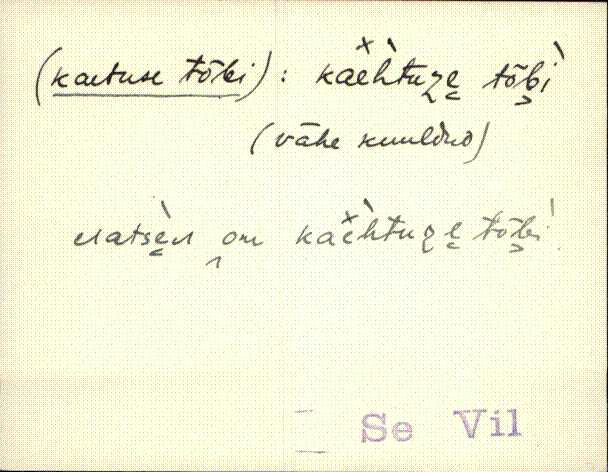 (kaetuse tõbi): kaèhtuze tõbi
(vähe kuuldud)
latsel om kaèhtuze tõbi.
Se Vil